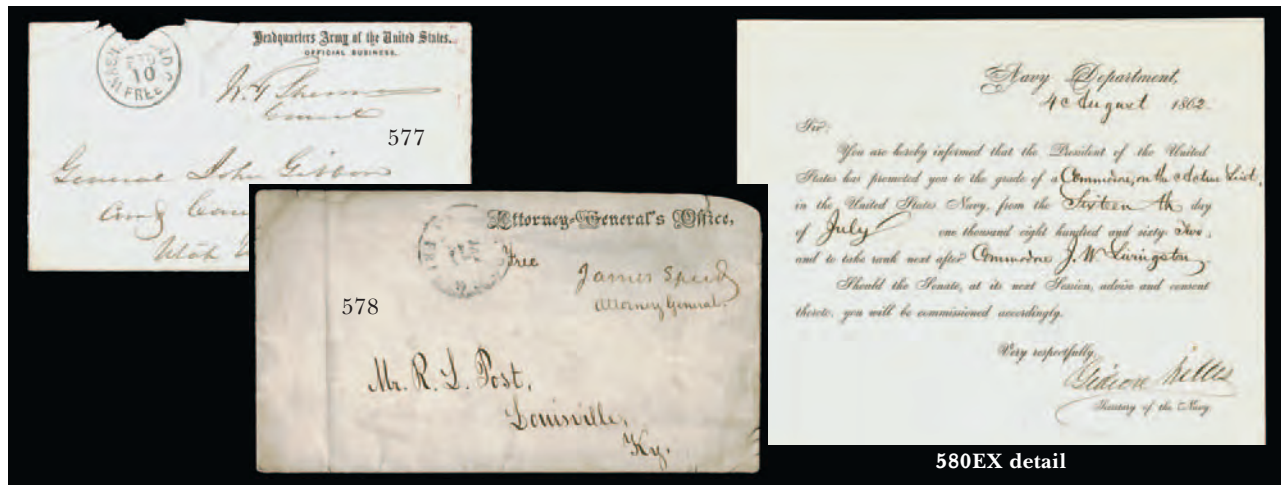 Headquarters Army of the United States.
OFFICIAL BUSINESS.
10
FREE
W. T. Sherman
577
General John Gibbon
Utah
Attorney-General's Office,
Free
James Speed
Attorney General.
578
Mr. R. L. Post,
Louisville,
Ky.
Navy Department,
4 August 1862.
Sir:
You are hereby informed that the President of the United
States has promoted you to the grade of a Commodore, on the Active List,
in the United States Navy, from the Sixteenth day
of July one thousand eight hundred and sixty Two,
and to take rank next after Commodore J. W. Livingston.
Should the Senate, at its next Session, advise and consent
thereto, you will be commissioned accordingly.
Very respectfully,
Gideon Welles
Secretary of the Navy
580EX detail